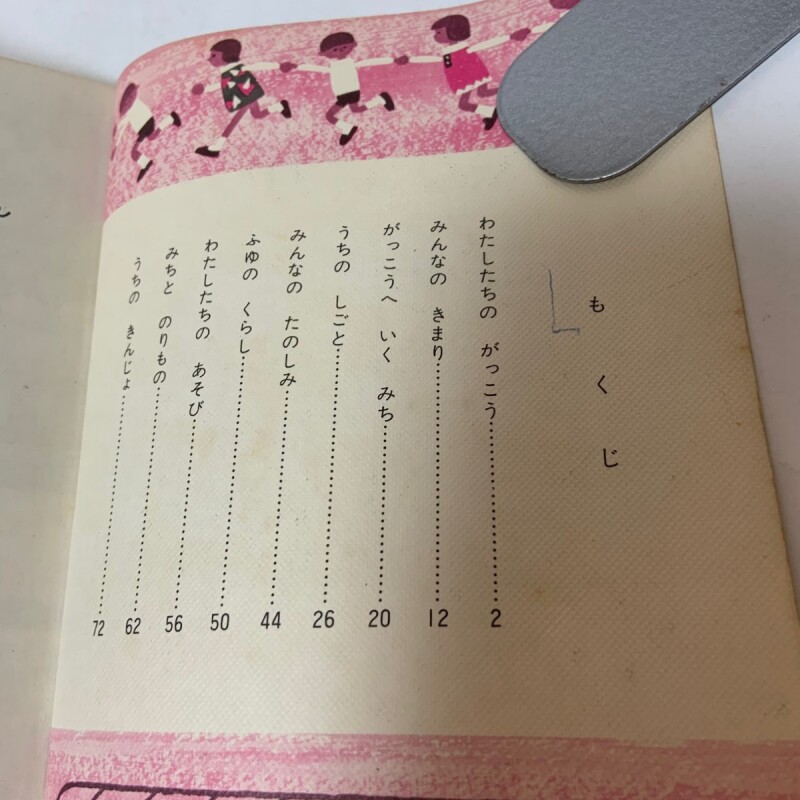 もくじ
わたしたちの がっこう……………2
みんなの きまり……………12
がっこうへ いく みち……………20
うちの しごと……………26
みんなの たのしみ……………44
ふゆの くらし……………50
わたしたちの あそび……………56
みちと のりもの……………62
うちの きんじょ……………72